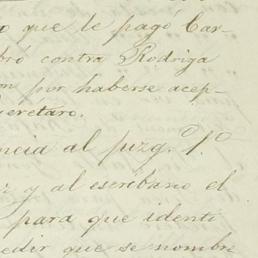 o que le pagó Car-
bró contra Rodrig
on por haberse acep-
ueretaro.
encia al juzg.º 1.º
r y al escribano el
para que identi
edir que se nombre